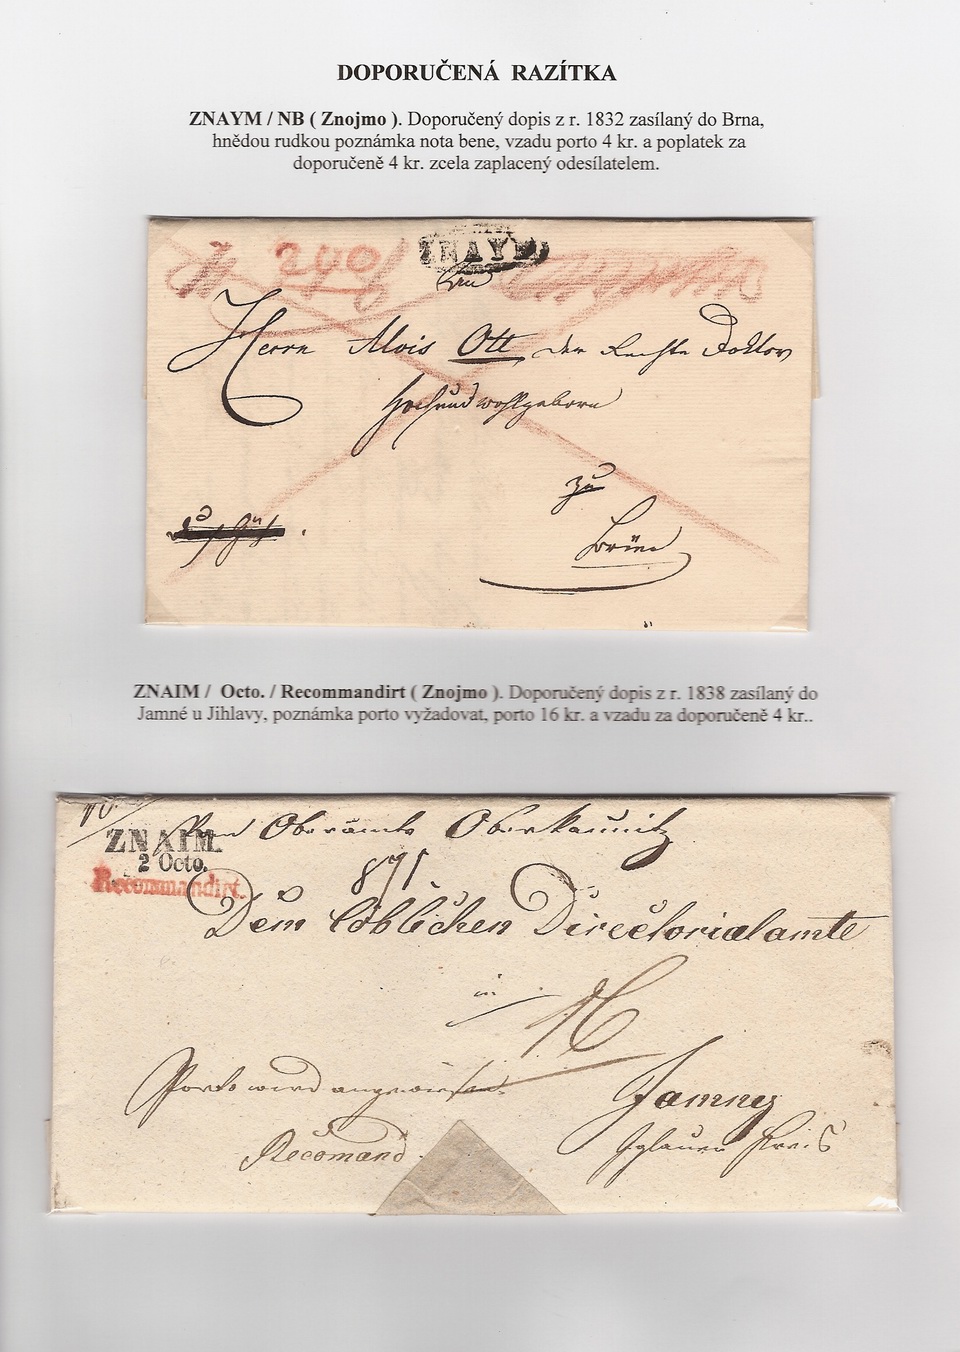 DOPORUČENÁ RAZÍTKA
ZNAYM / NB ( Znojmo ). Doporučený dopis z r. 1832 zasílaný do Brna,
hnědou rudkou poznámka nota bene, vzadu porto 4 kr. a poplatek za
doporučeně 4 kr. zcela zaplacený odesílatelem.
ZNAYM
Herrn Alois Ott der Rechte Doktor
Hochundwohlgeborn
zu
Brünn
ZNAIM / Octo. / Recommandirt ( Znojmo ). Doporučený dopis z r. 1838 zasílaný do
Jamné u Jihlavy, poznámka porto vyžadovat, porto 16 kr. a vzadu za doporučeně 4 kr..
Vom Oberamte Oberkaunitz
ZNAIM.
2 Octo.
871
Recommandirt.
Dem löblichen Directorialamte
in
16
Porto wird angewiesen.
Jamny
Recomand.
Iglauer Kreis